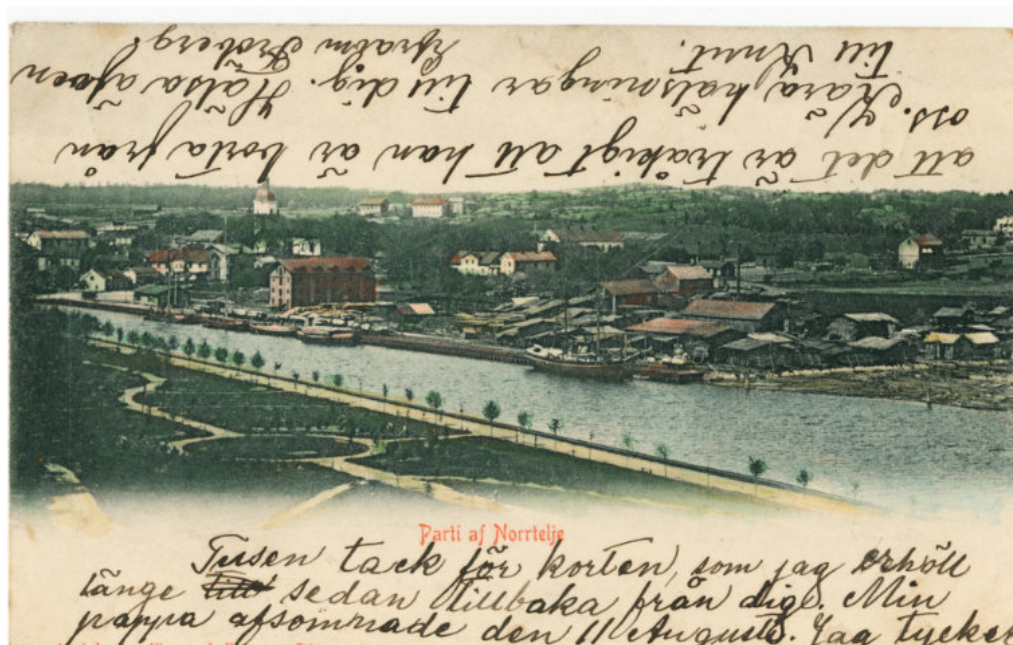 Parti af Norrtelje
Tusen tack för korten, som jag erhöll
länge sedan tillbaka från dig. Min
pappa afsomnade den 11 Augusti. Jag tycker
att det är tråkigt att han är borta från
oss. Kära hälsningar till dig. Hälsa äfven
till Knut. Efraim Fröberg.